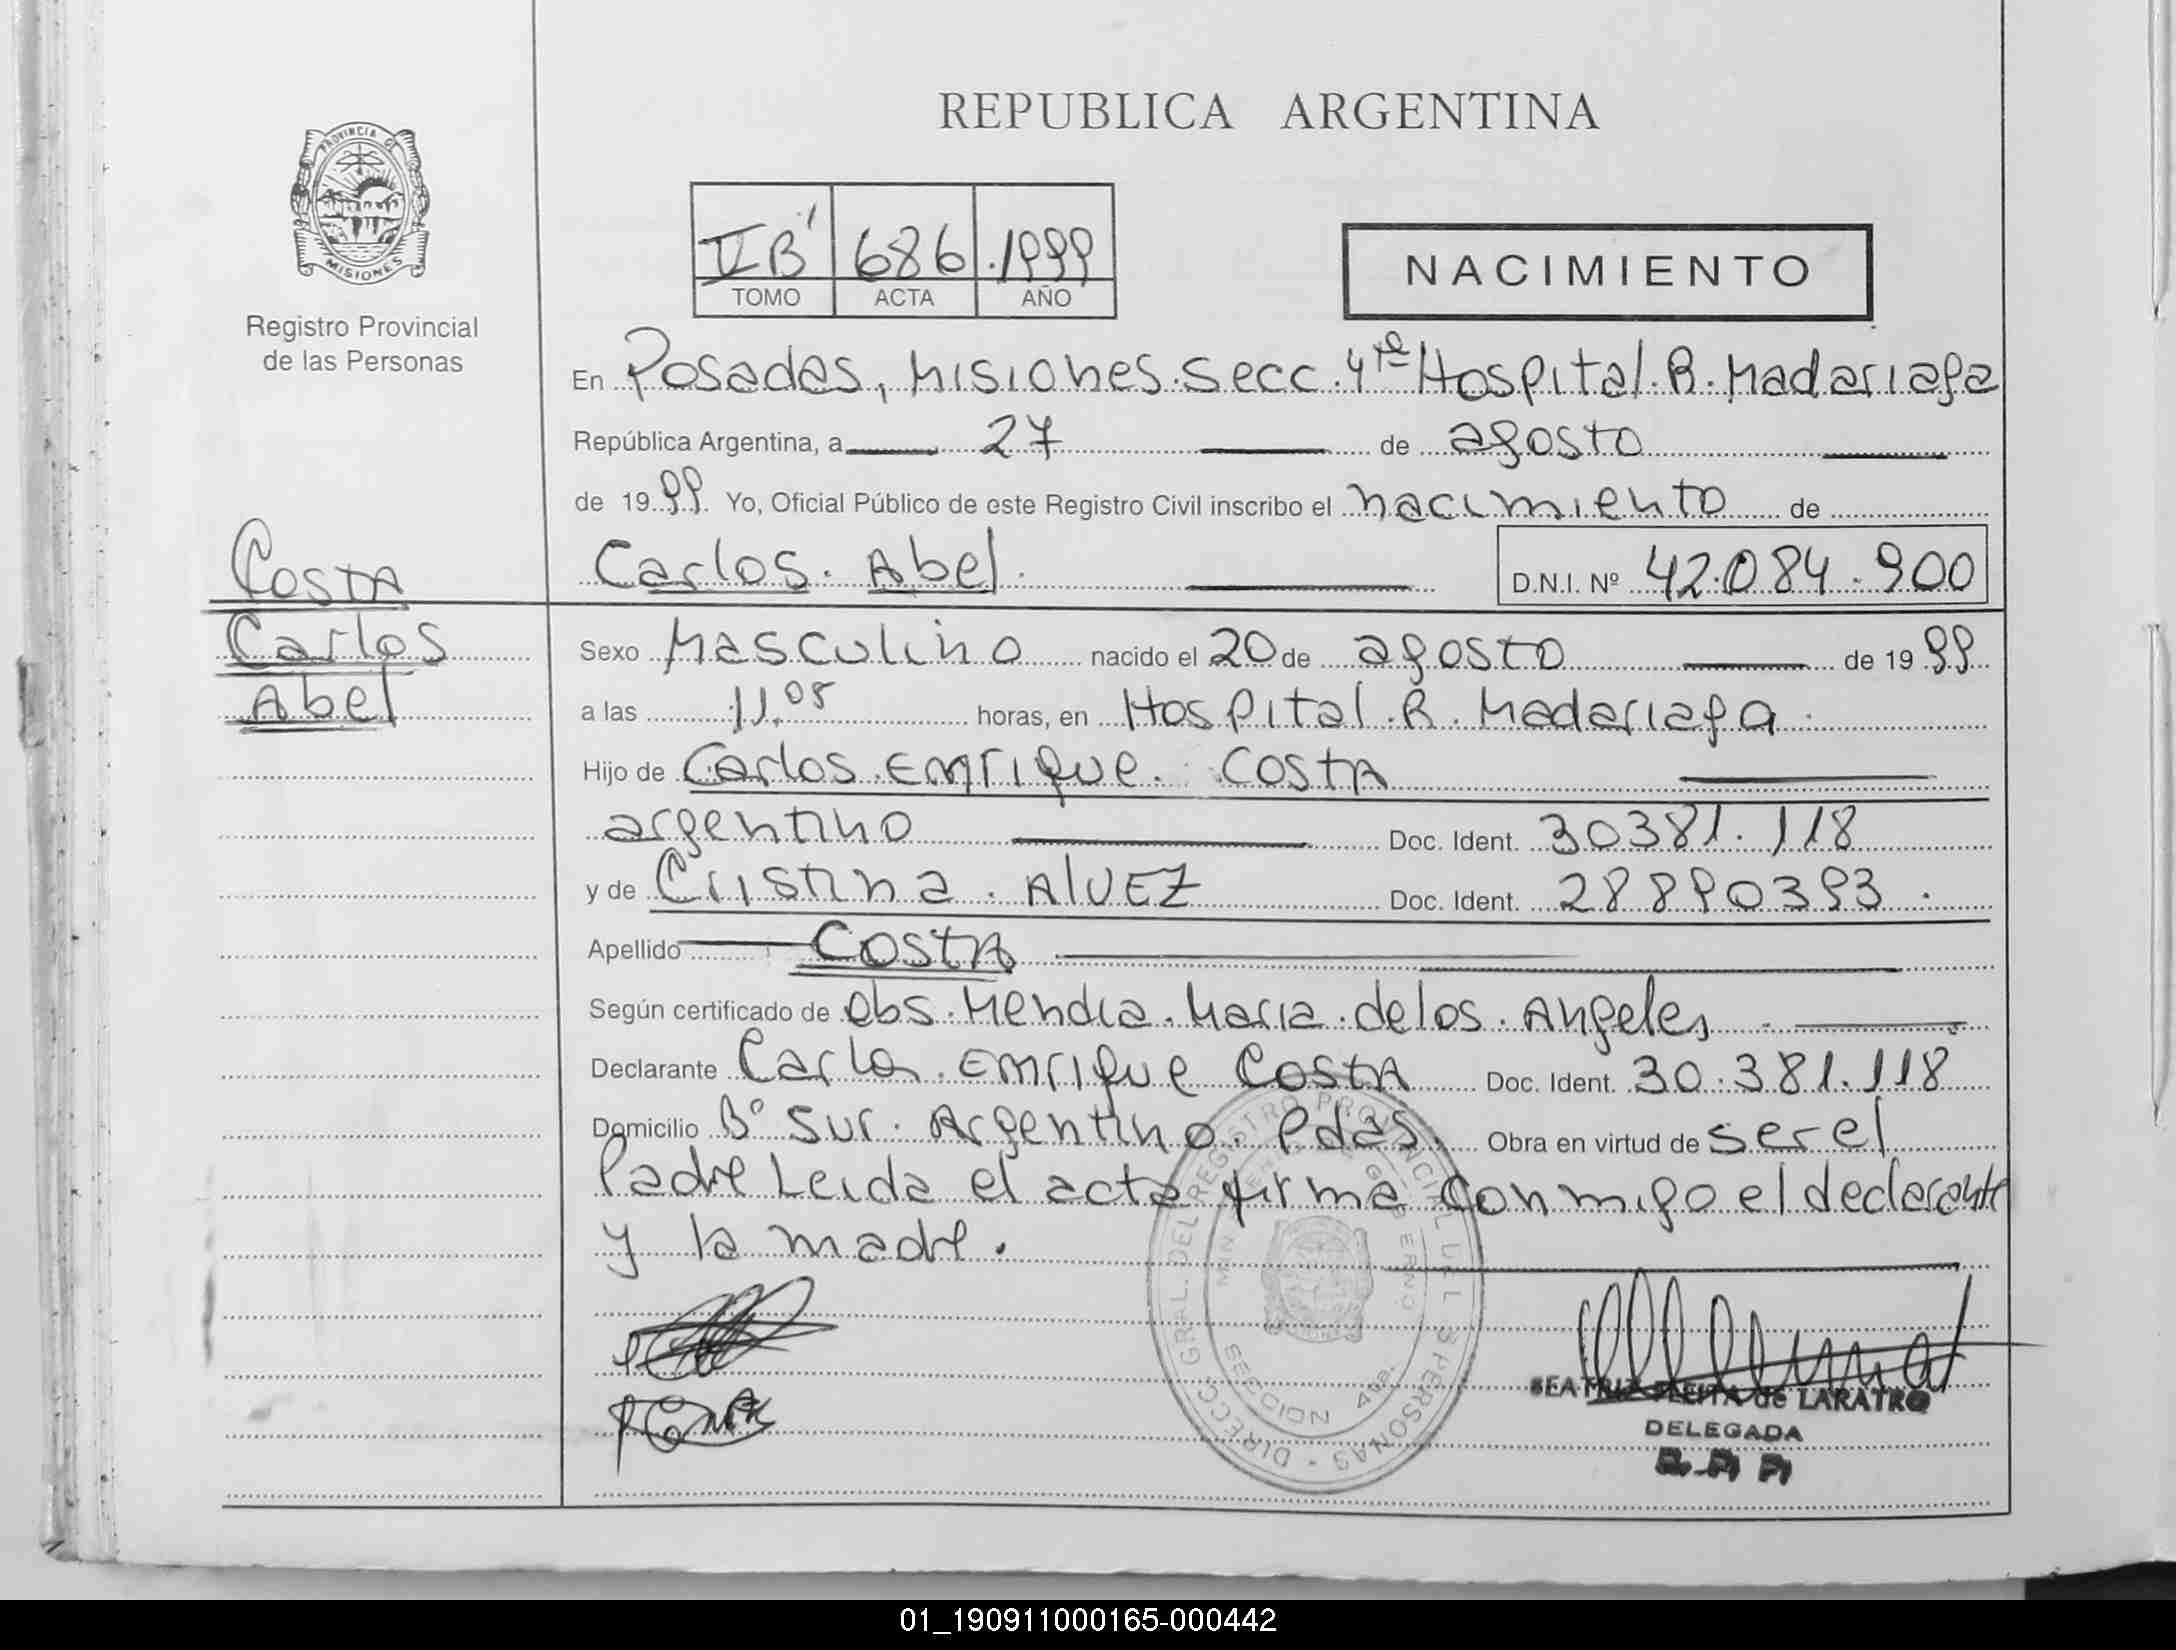 REPUBLICA ARGENTINA
PROVINCIA DE
MISIONES
Registro Provincial
de las Personas
II B' 686 1999
TOMO ACTA AÑO
NACIMIENTO
En Posadas, Misiones. Secc. 4ta Hospital. R. Madariaga
República Argentina, a 27 de agosto
de 1999. Yo, Oficial Público de este Registro Civil inscribo el nacimiento de
Carlos. Abel.
D.N.I. Nº 42.084.900
Costa
Carlos
Abel
Sexo Masculino nacido el 20 de agosto de 1999
a las 11,05 horas, en Hospital. R. Madariaga.
Hijo de Carlos. Enrique. Costa
argentino Doc. Ident. 30381.118
y de Cristina. Alvez Doc. Ident. 28890393.
Apellido Costa
Según certificado de Obs. Mendia. Maria. de los. Angeles
Declarante Carlos. Enrique Costa Doc. Ident. 30.381.118
Domicilio Bº Sur. Argentino. Pdas. Obra en virtud de ser el
Padre Leida el acta firma conmigo el declarante
y la madre.
DIRECC. GRAL. DEL REGISTRO PROVINCIAL DE LAS PERSONAS
SECCION 4ta.
BEATRIZ FLEITA de LARATRO
DELEGADA
R.P.P.
01_190911000165-000442